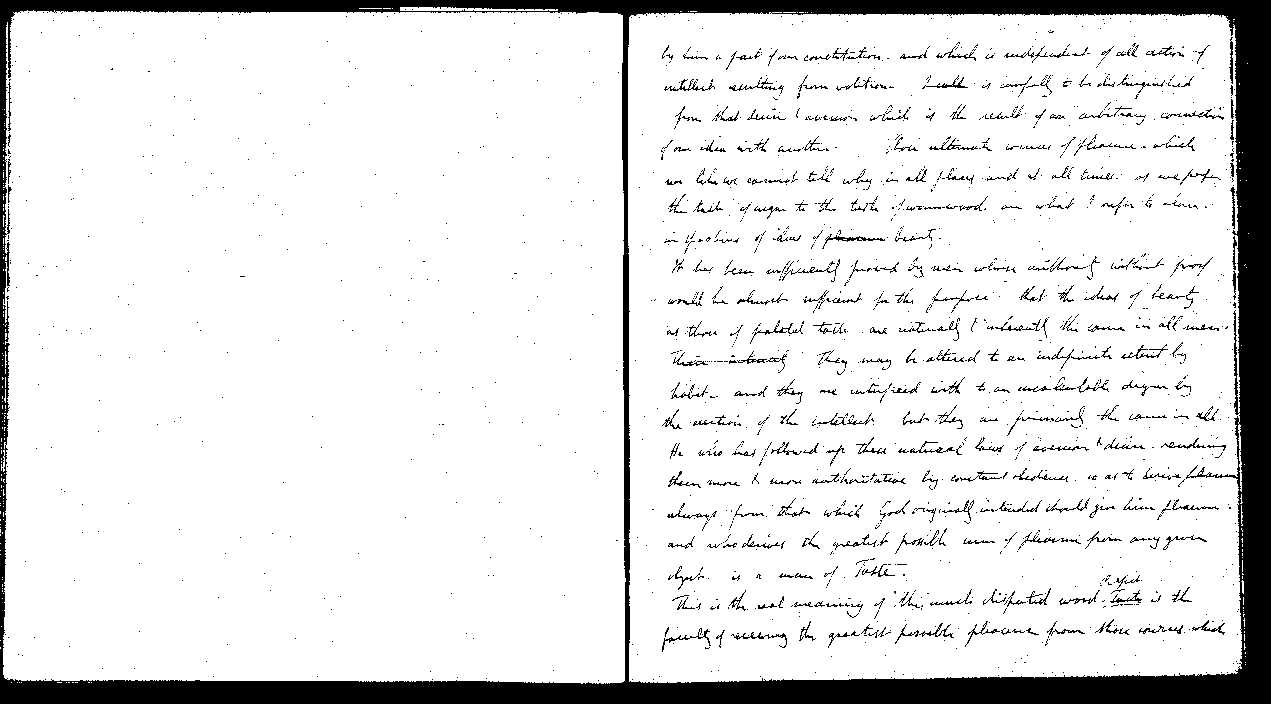 by him a part of our constitution. and which is independent of all action of
intellect resulting from volition. is carefully to be distinguished
from that desire & aversion which is the result of an arbitrary connection
of one idea with another. those ultimate sources of pleasure. which
we cannot tell why in all places and at all times. as we prefer
the taste of sugar to the taste of wormwood. are what I refer to alone.
in speaking of ideas of pleasure beauty.
It has been sufficiently proved by men whose authority without proof
would be almost sufficient for the purpose that the ideas of beauty
as those of palatal taste are naturally & inherently the same in all men.
They may be altered to an indefinite extent by
habit. and they are interfered with to an incalculable degree by
the action of the intellect but they are primarily the same in all
He who has followed up these natural laws of aversion & desire. rendering
them more & more authoritative by constant obedience. so as to derive pleasure
always from that which God originally intended should give him pleasure.
and who derives the greatest possible sum of pleasure from any given
object is a man of Taste.
This is the real meaning of this much disputed word. Taste is the
faculty of receiving the greatest possible pleasure from those sources which